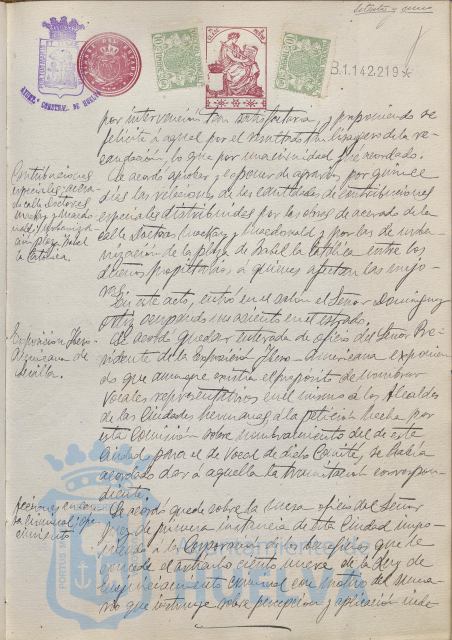 setenta y cinco
B.1.142.219
por intervención tan satisfactoria, y proponiendo se
felicite á aquel por el resultado tan lisonjero de la re-
caudación, lo que por unanimidad fue acordado.
Contribuciones
especiales acera-
do calle Doctores
Mackay y Macdo-
nald y urbaniza-
ción plaza Isabel
la Católica.
Se acordó aprobar y exponer de agravios por quince
días las relaciones de las cantidades de contribuciones
especiales distribuidas por las obras de acerado de la
calle Doctores Mackay y Macdonald y por las de urba-
nización de la plaza de Isabel la Católica entre los
propietarios á quienes afectan las mejo-
ras.
En este acto, entró en el salón el Señor Dominguez
Ortiz ocupando su asiento en el estrado.
Exposición Ibero-
Americana de
Sevilla.
Se acordó quedar enterada de oficio del Señor Pre-
sidente de la Exposición Ibero-Americana exponien-
do que aunque existía el propósito de nombrar
Vocales representativos en el mismo á los Alcaldes
de las Ciudades hermanas, á la petición hecha por
esta Comisión sobre nombramiento del de esta
Ciudad para el de Vocal de dicho Comité, se había
acordado dar á aquella la tramitación correspon-
diente.
Se acordó quede sobre la mesa oficio del Señor
Juez de primera instancia de esta Ciudad
á la Corporación
concede el artículo ciento nueve de la Ley de
enjuiciamiento criminal con motivo del suma-
rio que instruye sobre percepción y aplicación inde-
Ayuntamiento de
HUELVA